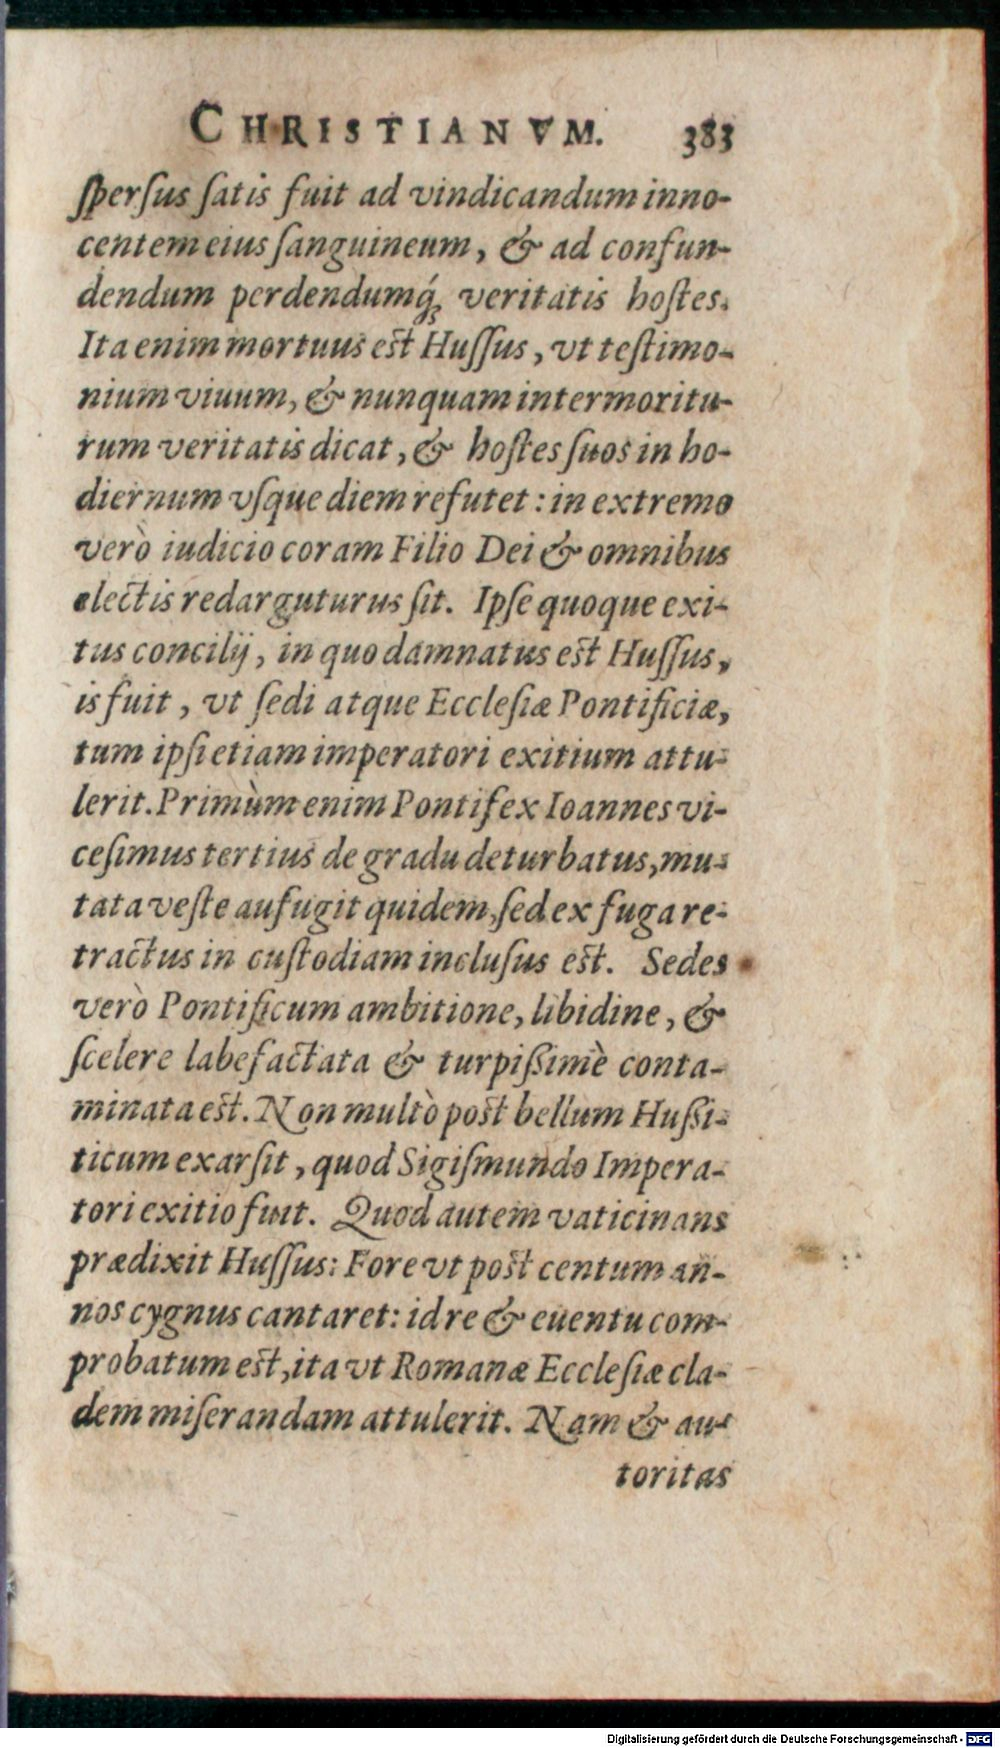 CHRISTIANVM. 383
ſperſus ſatis fuit ad vindicandum inno-
centem eius ſanguineum, & ad confun-
dendum perdendumq́; veritatis hoſtes.
Ita enim mortuus eſt Huſſus, vt teſtimo-
nium viuum, & nunquam intermoritu-
rum veritatis dicat, & hoſtes ſuos in ho-
diernum vſque diem refutet: in extremo
verò iudicio coram Filio Dei & omnibus
electis redarguturus ſit. Ipſe quoque exi-
tus concilij, in quo damnatus eſt Huſſus,
is fuit, vt ſedi atque Eccleſiæ Pontificiæ,
tum ipſi etiam imperatori exitium attu-
lerit. Primùm enim Pontifex Ioannes vi-
ceſimus tertius de gradu deturbatus, mu-
tata veſte aufugit quidem, ſed ex fuga re-
tractus in cuſtodiam incluſus eſt. Sedes
verò Pontificum ambitione, libidine, &
ſcelere labefactata & turpißimè conta-
minata eſt. Non multò poſt bellum Hußi-
ticum exarſit, quod Sigiſmundo Impera-
tori exitio fuit. Quod autem vaticinans
prædixit Huſſus: Fore vt poſt centum an-
nos cygnus cantaret: id re & euentu com-
probatum eſt, ita vt Romanæ Eccleſiæ cla-
dem miſerandam attulerit. Nam & au-
toritas
Digitalisierung gefördert durch die Deutsche Forschungsgemeinschaft - DFG